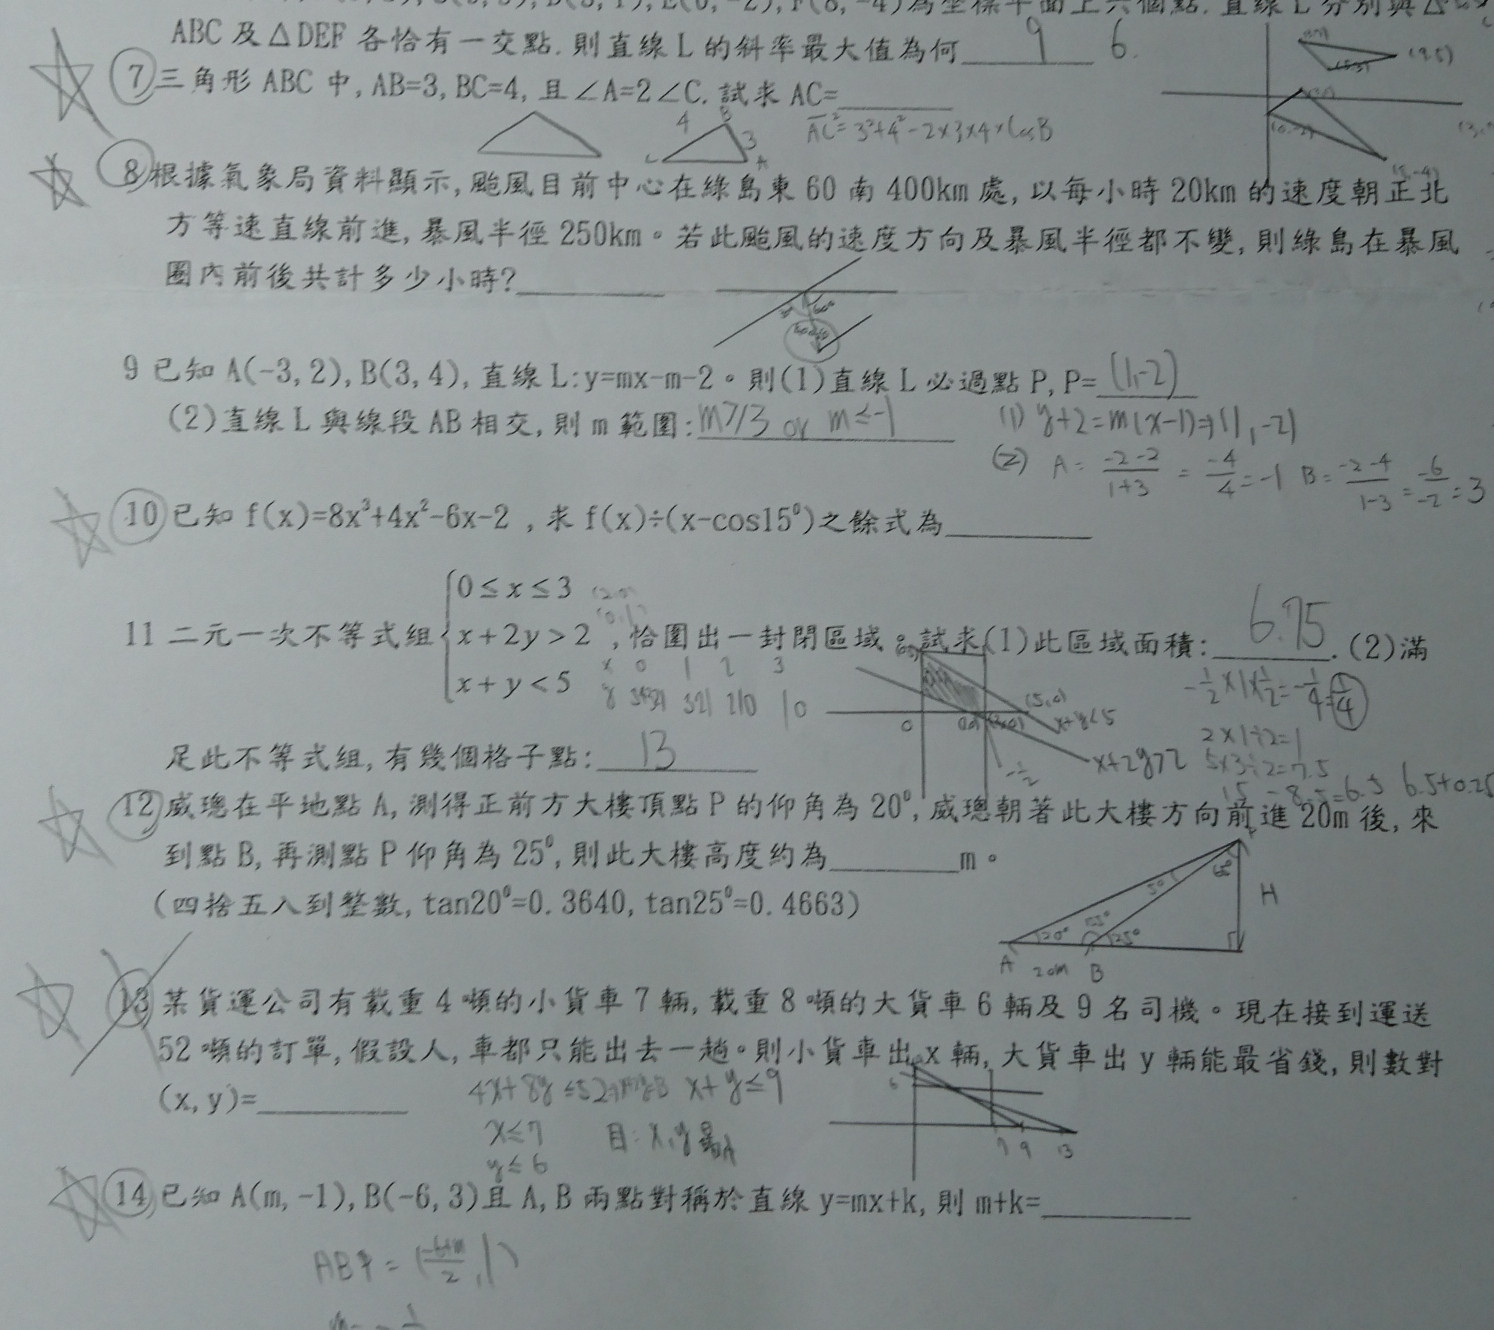 ABC 及△DEF 各恰有一交點. 則直線 L 的斜率最大值為何 9 6.
7 三角形 ABC 中, AB=3, BC=4, 且∠A=2∠C. 試求 AC=
4 B 3 A AC²=3²+4²-2×3×4×CosB
8 根據氣象局資料顯示, 颱風目前中心在綠島東 60 南 400km 處, 以每小時 20km 的速度朝正北
方等速直線前進, 暴風半徑 250km。若此颱風的速度方向及暴風半徑都不變, 則綠島在暴風
圈內前後共計多少小時?
60°
9 已知 A(-3, 2), B(3, 4), 直線 L:y=mx-m-2。則(1)直線 L 必過點 P, P= (1,-2)
(2)直線 L 與線段 AB 相交, 則 m 範圍: m≥3 or m≤-1
(1) y+2=m(x-1)⇒(1,-2)
(2) A= -2-2/1+3 = -4/4=-1 B= -2-4/1-3 = -6/-2 =3
10 已知 f(x)=8x³+4x²-6x-2 , 求 f(x)÷(x-cos15⁰)之餘式為
11 二元一次不等式組 {0≤x≤3
x+2y>2 , 恰圍出一封閉區域。試求(1)此區域面積: 6.75 . (2)滿
x+y<5
x 0 1 2 3
y 321 210 10
(5,0) x+y<5
x+2y>2
-1/2×1×1/2=-1/4
2×1÷2=1
5×3÷2=7.5
足此不等式組, 有幾個格子點: 13
12 威璁在平地點 A, 測得正前方大樓頂點 P 的仰角為 20⁰, 威璁朝著此大樓方向前進 20m 後, 來
到點 B, 再測點 P 仰角為 25⁰, 則此大樓高度約為 m。
(四捨五入到整數, tan20⁰=0.3640, tan25⁰=0.4663)
5° 65° H
20° 155° 25°
A 20m B
13 某貨運公司有載重 4 噸的小貨車 7 輛, 載重 8 噸的大貨車 6 輛及 9 名司機。現在接到運送
52 噸的訂單, 假設人, 車都只能出去一趟。則小貨車出 x 輛, 大貨車出 y 輛能最省錢, 則數對
(x, y)=
4x+8y≤52 x+y≤9
x≤7
y≤6
6 7 9 13
14 已知 A(m, -1), B(-6, 3)且 A, B 兩點對稱於直線 y=mx+k, 則 m+k=
AB中=(-6+m/2,1)